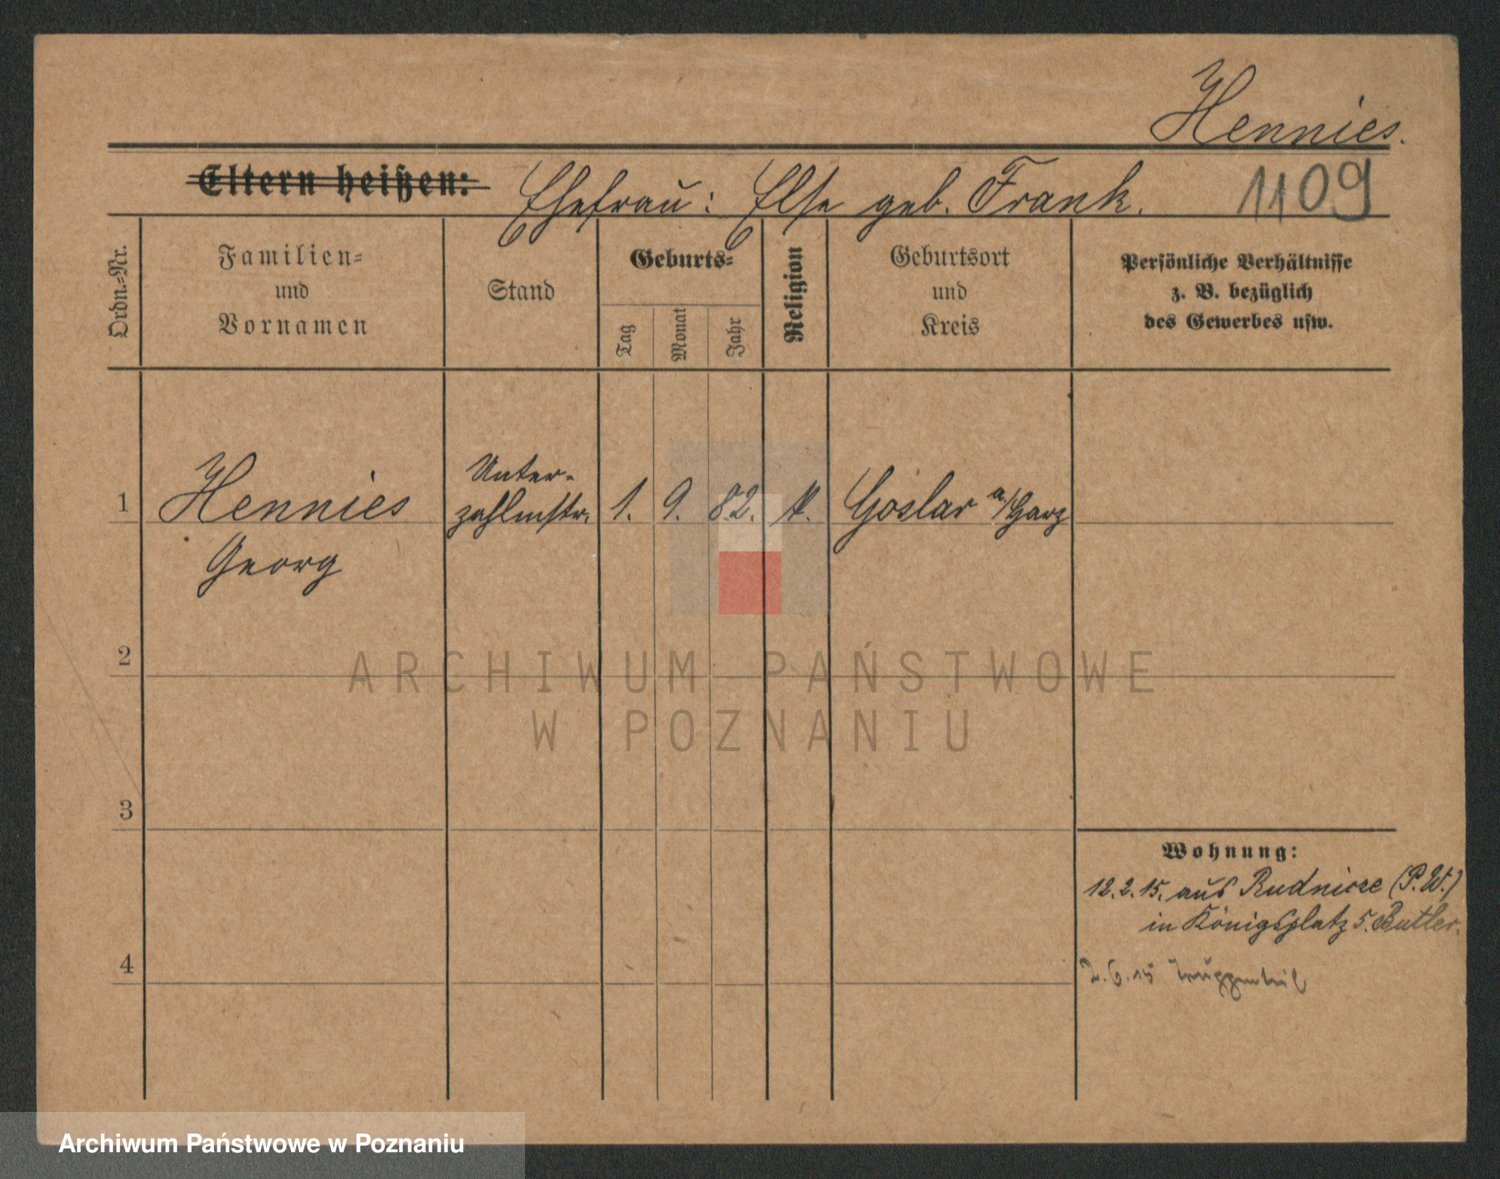 Hennies.
Eltern heißen: Ehefrau: Else geb. Frank. 1109
Ordn.=Nr.
Familien=
und
Vornamen
Stand
Geburts=
Tag
Monat
Jahr
Religion
Geburtsort
und
Kreis
Persönliche Verhältnisse
z. B. bezüglich
des Gewerbes usw.
1 Hennies Unter- 1. 9. 82. Goslar a/Harz
zahlmstr.
Georg
2
ARCHIWUM PAŃSTWOWE
W POZNANIU
3
Wohnung:
12.2.15. aus Rudnicze (P.W.)
in Königsplatz 5. Butler.
4
2.6.15 Truppenteil
Archiwum Państwowe w Poznaniu